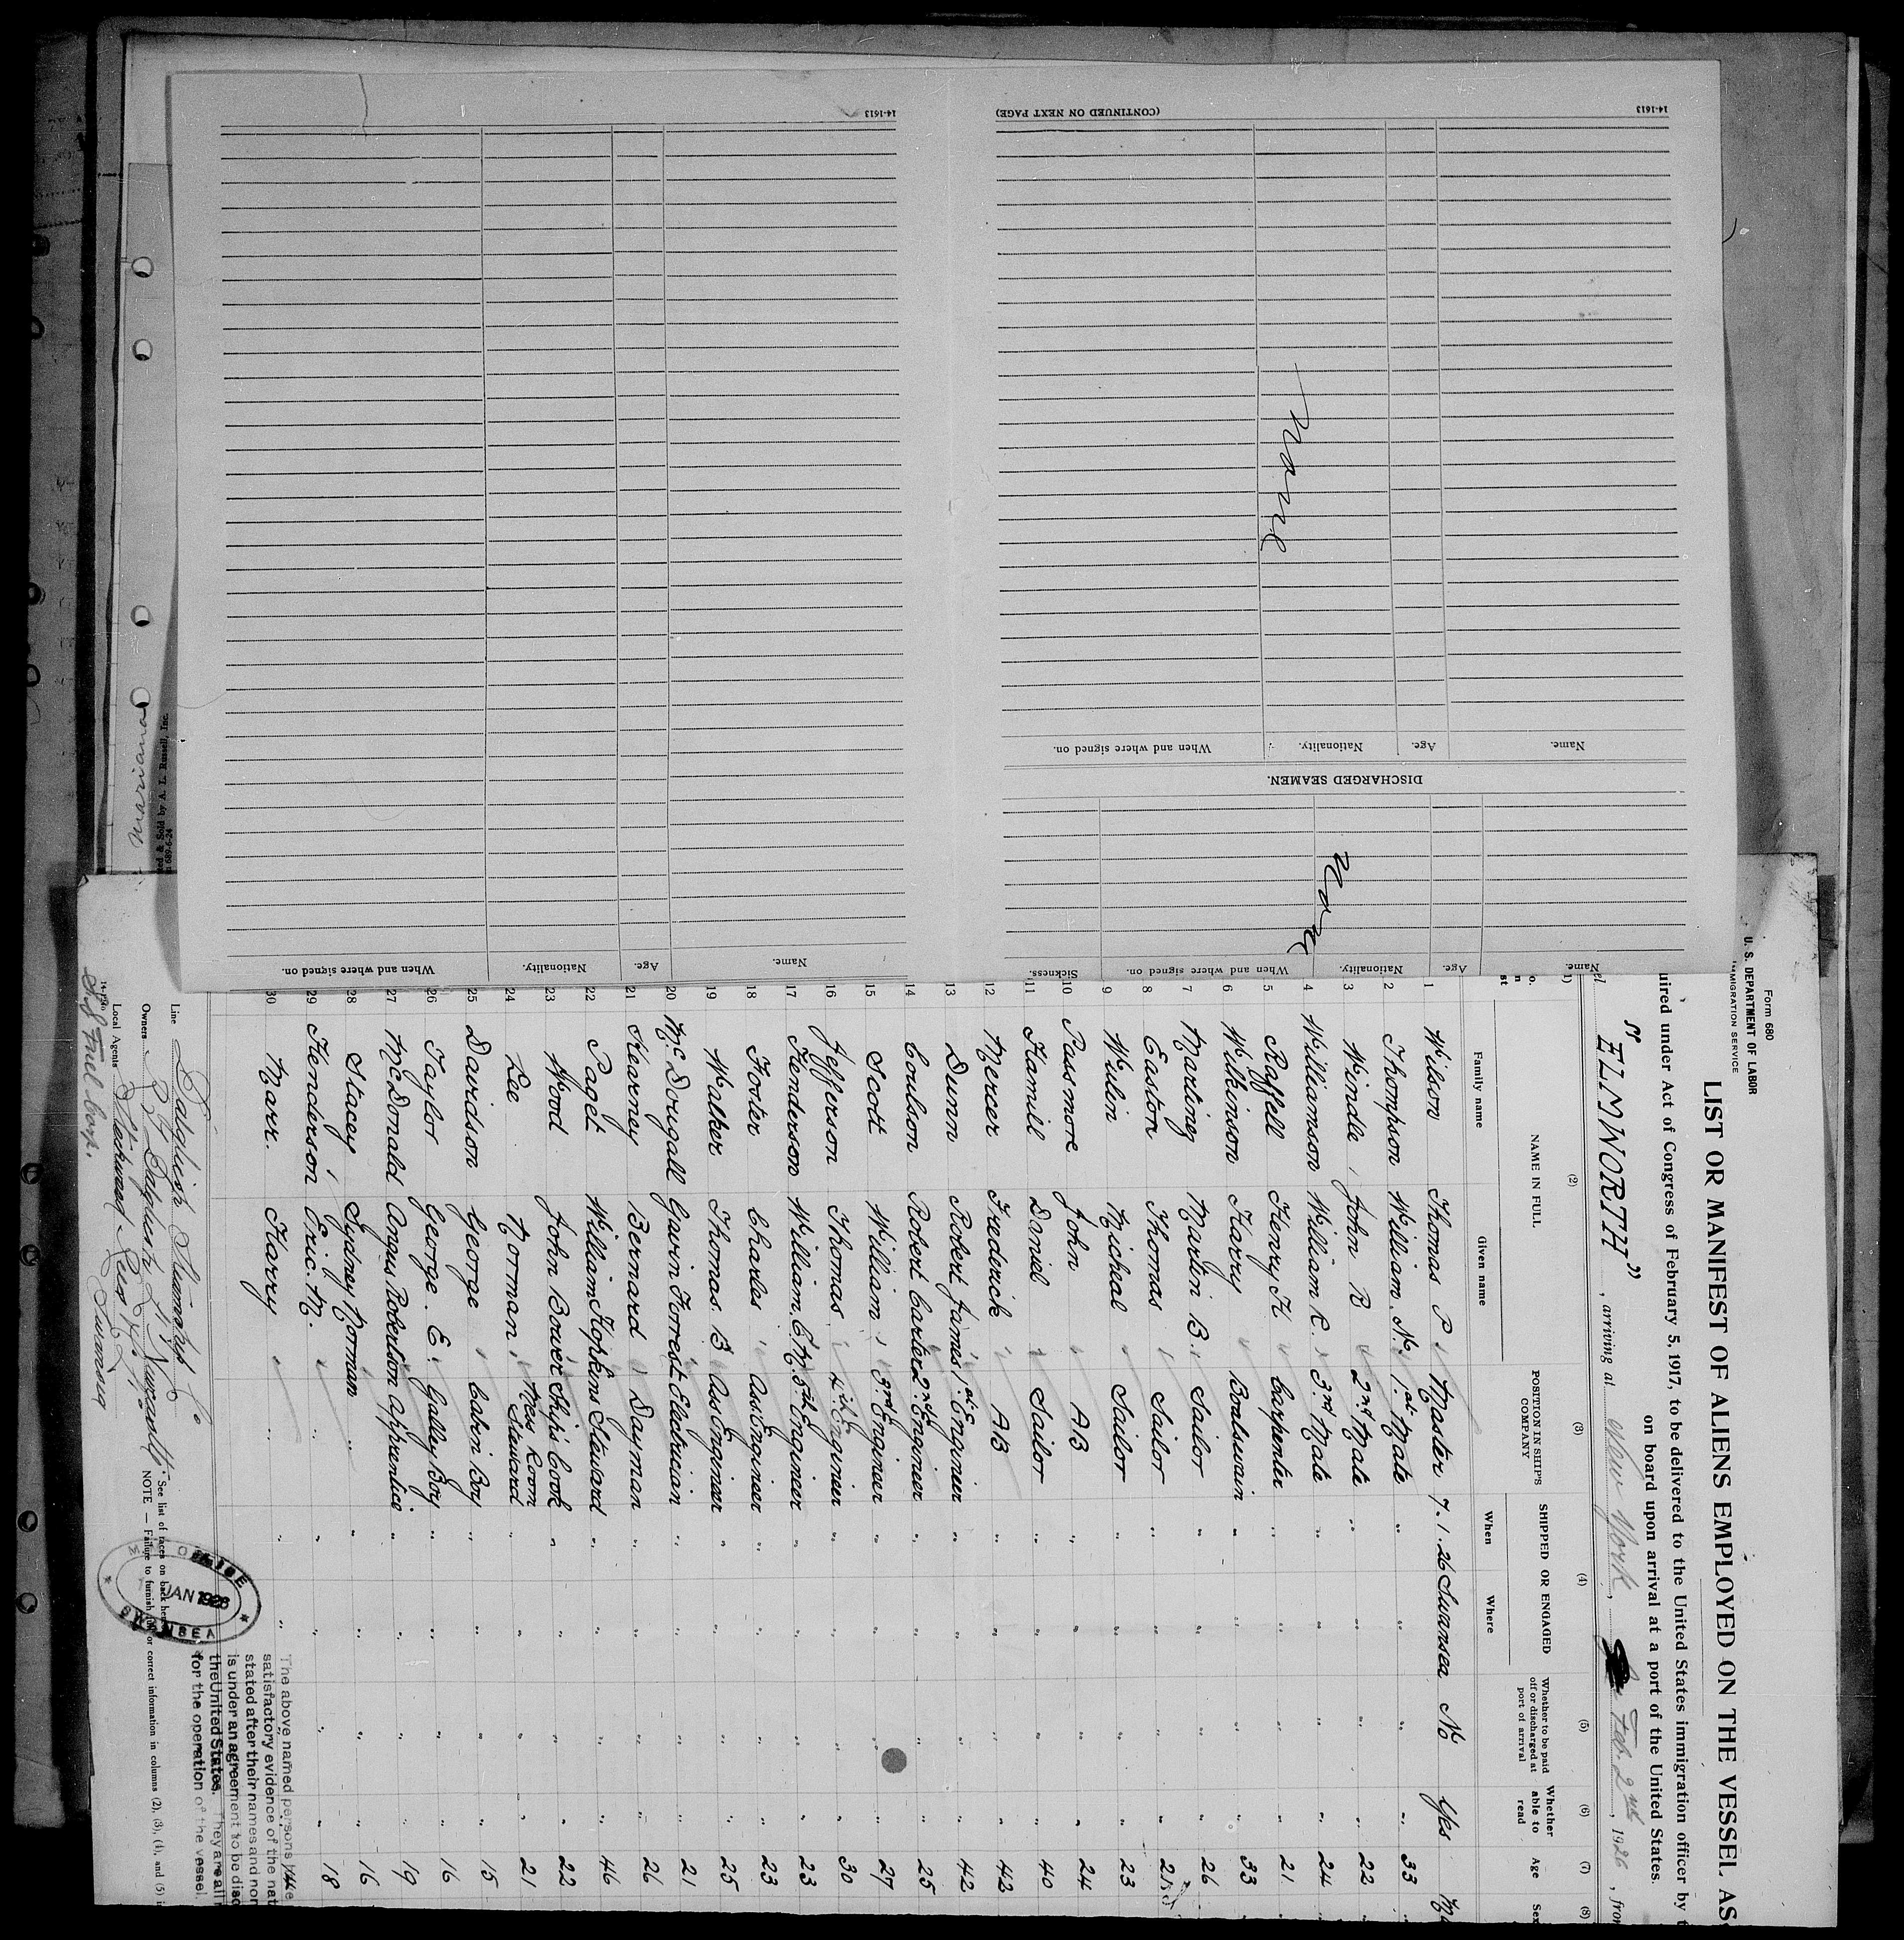 14-1613
(CONTINUED ON NEXT PAGE)
14-1613
None
Name.
Age.
Nationality.
When and where signed on.
DISCHARGED SEAMEN.
None
Name.
Age.
Nationality.
When and where signed on.
Sickness.
Name.
Age.
Nationality.
When and where signed on.
Form 680
U. S. DEPARTMENT OF LABOR
IMMIGRATION SERVICE
LIST OR MANIFEST OF ALIENS EMPLOYED ON THE VESSEL AS
uired under Act of Congress of February 5, 1917, to be delivered to the United States immigration officer by t
on board upon arrival at a port of the United States.
"ELMWORTH", arriving at New York, Feb. 2nd, 1926, from
(2) (3) (4) (5) (6) (7) (8)
NAME IN FULL
Family name Given name
POSITION IN SHIP'S COMPANY
SHIPPED OR ENGAGED
When Where
Whether to be paid off or discharged at port of arrival
Whether able to read
Age
Sex
1 Wilson Thomas P. Master 7.1.26 Swansea No Yes
2 Thompson William N. 1st Mate " " " " 33
3 Windle John R 2nd Mate " " " " 22
4 Williamson William R. 3rd Mate " " " " 24
5 Raffell Henry H Carpenter " " " " 21
6 Wilkinson Harry Boatswain " " " " 33
7 Martinez Martin B. Sailor " " " " 26
8 Easton Thomas Sailor " " " "
9 Wulin Micheal Sailor " " " " 23
10 Passmore John AB " " " " 24
11 Hamil Daniel Sailor " " " " 40
12 Mercer Frederick AB " " " " 42
13 Dunn Robert James 1st Engineer " " " " 42
14 Coulson Robert Carter 2nd Engineer " " " " 25
15 Scott William 3rd Engineer " " " " 27
16 Jefferson Thomas 4th Engineer " " " " 30
17 Henderson William 5th Engineer " " " " 23
18 Foster Charles Ass Engineer " " " " 23
19 Walker Thomas. B Ass Engineer " " " " 25
20 McDougall Gavin Forrest Electrician " " " " 21
21 Kearney Bernard Dayman " " " " 26
22 Paget William Hopkins Steward " " " " 46
23 Wood John Bower Ship's Cook " " " " 22
24 Lee Norman Mess Room Steward " " " " 21
25 Davidson George Cabin Boy " " " " 15
26 Taylor George. E. Galley Boy " " " " 16
27 McDonald Angus Robertson Apprentice " " " " 19
28 Stacey Sydney Norman " " " " " 16
29 Henderson Eric. M. " " " " " 18
30 Marr. Harry " " "
The above named persons have
satisfactory evidence of the nat
stated after their names and non
is under an agreement to be disc
the United States. They are all
for the operation of the vessel.
Line Dalgliesh Steamship Co
Owners R S Dalgliesh Ltd Newcastle
Local Agents Stockwood Rees & Co Ld Swansea
14-1240
See list of races on back hereof
NOTE — Failure to furnish or correct information in columns (2), (3), (4), and (5) i
OFFICE
JAN 1926
SWANSEA
ed & Sold by A. L. Russell, Inc.